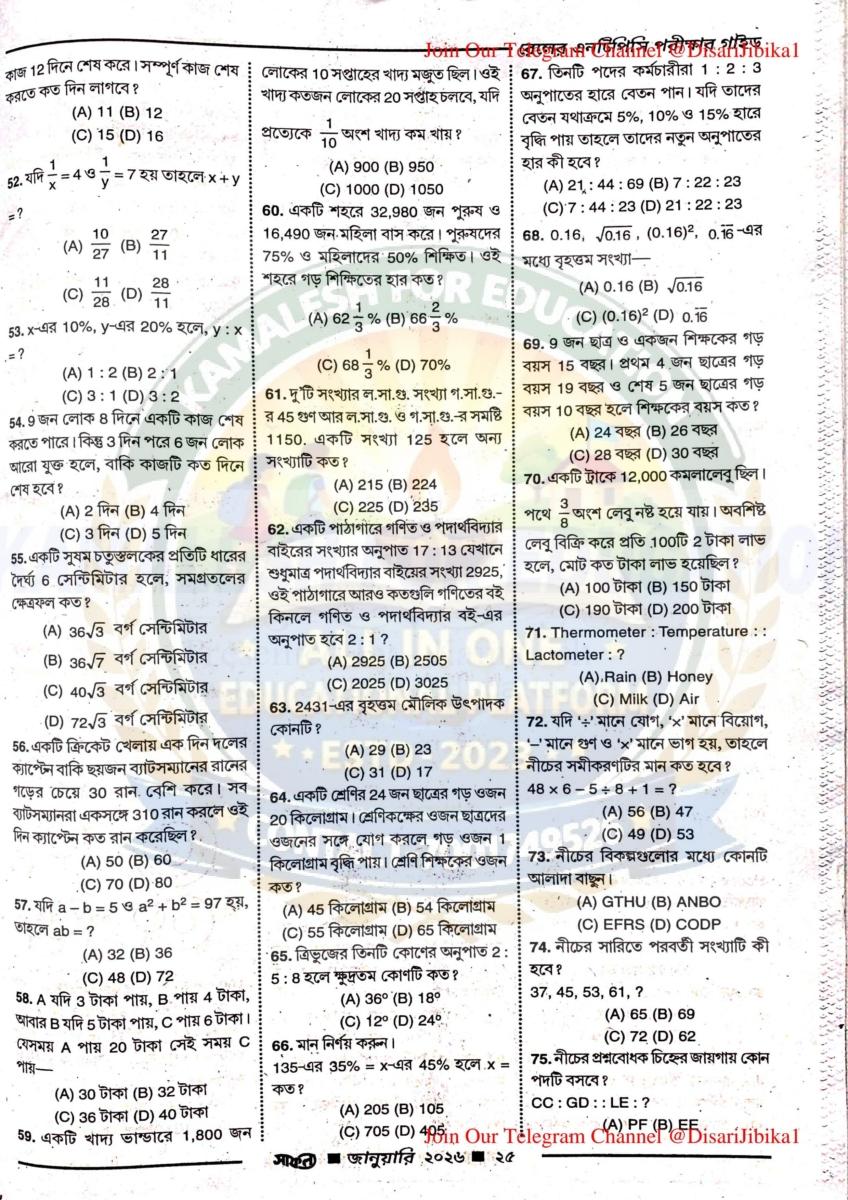 Join Our Telegram Channel @DisariJibika1
রেলের এনটিপিসি পরীক্ষার গাইড
কাজ 12 দিনে শেষ করে। সম্পূর্ণ কাজ শেষ
করতে কত দিন লাগবে?
(A) 11 (B) 12
(C) 15 (D) 16
52. যদি 1/x = 4 ও 1/y = 7 হয় তাহলে x + y
= ?
(A) 10/27 (B) 27/11
(C) 11/28 (D) 28/11
53. x-এর 10%, y-এর 20% হলে, y : x
= ?
(A) 1 : 2 (B) 2 : 1
(C) 3 : 1 (D) 3 : 2
54. 9 জন লোক 8 দিনে একটি কাজ শেষ
করতে পারে। কিন্তু 3 দিন পরে 6 জন লোক
আরো যুক্ত হলে, বাকি কাজটি কত দিনে
শেষ হবে?
(A) 2 দিন (B) 4 দিন
(C) 3 দিন (D) 5 দিন
55. একটি সুষম চতুস্তলকের প্রতিটি ধারের
দৈর্ঘ্য 6 সেন্টিমিটার হলে, সমগ্রতলের
ক্ষেত্রফল কত?
(A) 36√3 বর্গ সেন্টিমিটার
(B) 36√7 বর্গ সেন্টিমিটার
(C) 40√3 বর্গ সেন্টিমিটার
(D) 72√3 বর্গ সেন্টিমিটার
56. একটি ক্রিকেট খেলায় এক দিন দলের
ক্যাপ্টেন বাকি ছয়জন ব্যাটসম্যানের রানের
গড়ের চেয়ে 30 রান বেশি করে। সব
ব্যাটসম্যানরা একসঙ্গে 310 রান করলে ওই
দিন ক্যাপ্টেন কত রান করেছিল?
(A) 50 (B) 60
(C) 70 (D) 80
57. যদি a – b = 5 ও a² + b² = 97 হয়,
তাহলে ab = ?
(A) 32 (B) 36
(C) 48 (D) 72
58. A যদি 3 টাকা পায়, B পায় 4 টাকা,
আবার B যদি 5 টাকা পায়, C পায় 6 টাকা।
যেসময় A পায় 20 টাকা সেই সময় C
পায়—
(A) 30 টাকা (B) 32 টাকা
(C) 36 টাকা (D) 40 টাকা
59. একটি খাদ্য ভান্ডারে 1,800 জন
লোকের 10 সপ্তাহের খাদ্য মজুত ছিল। ওই
খাদ্য কতজন লোকের 20 সপ্তাহ চলবে, যদি
প্রত্যেকে 1/10 অংশ খাদ্য কম খায়?
(A) 900 (B) 950
(C) 1000 (D) 1050
60. একটি শহরে 32,980 জন পুরুষ ও
16,490 জন মহিলা বাস করে। পুরুষদের
75% ও মহিলাদের 50% শিক্ষিত। ওই
শহরে গড় শিক্ষিতের হার কত?
(A) 62 1/3 % (B) 66 2/3 %
(C) 68 1/3 % (D) 70%
61. দু'টি সংখ্যার ল.সা.গু. সংখ্যা গ.সা.গু.-
র 45 গুণ আর ল.সা.গু. ও গ.সা.গু.-র সমষ্টি
1150. একটি সংখ্যা 125 হলে অন্য
সংখ্যাটি কত?
(A) 215 (B) 224
(C) 225 (D) 235
62. একটি পাঠাগারে গণিত ও পদার্থবিদ্যার
বাইরের সংখ্যার অনুপাত 17 : 13 যেখানে
শুধুমাত্র পদার্থবিদ্যার বাইয়ের সংখ্যা 2925,
ওই পাঠাগারে আরও কতগুলি গণিতের বই
কিনলে গণিত ও পদার্থবিদ্যার বই-এর
অনুপাত হবে 2 : 1 ?
(A) 2925 (B) 2505
(C) 2025 (D) 3025
63. 2431-এর বৃহত্তম মৌলিক উৎপাদক
কোনটি?
(A) 29 (B) 23
(C) 31 (D) 17
64. একটি শ্রেণির 24 জন ছাত্রের গড় ওজন
20 কিলোগ্রাম। শ্রেণিকক্ষের ওজন ছাত্রদের
ওজনের সঙ্গে যোগ করলে গড় ওজন 1
কিলোগ্রাম বৃদ্ধি পায়। শ্রেণি শিক্ষকের ওজন
কত?
(A) 45 কিলোগ্রাম (B) 54 কিলোগ্রাম
(C) 55 কিলোগ্রাম (D) 65 কিলোগ্রাম
65. ত্রিভুজের তিনটি কোণের অনুপাত 2 :
5 : 8 হলে ক্ষুদ্রতম কোণটি কত?
(A) 36º (B) 18º
(C) 12º (D) 24º
66. মান নির্ণয় করুন।
135-এর 35% = x-এর 45% হলে x =
কত?
(A) 205 (B) 105
(C) 705 (D) 405
67. তিনটি পদের কর্মচারীরা 1 : 2 : 3
অনুপাতের হারে বেতন পান। যদি তাদের
বেতন যথাক্রমে 5%, 10% ও 15% হারে
বৃদ্ধি পায় তাহলে তাদের নতুন অনুপাতের
হার কী হবে?
(A) 21 : 44 : 69 (B) 7 : 22 : 23
(C) 7 : 44 : 23 (D) 21 : 22 : 23
68. 0.16, √0.16, (0.16)², 0.1̅6̅ -এর
মধ্যে বৃহত্তম সংখ্যা—
(A) 0.16 (B) √0.16
(C) (0.16)² (D) 0.1̅6̅
69. 9 জন ছাত্র ও একজন শিক্ষকের গড়
বয়স 15 বছর। প্রথম 4 জন ছাত্রের গড়
বয়স 19 বছর ও শেষ 5 জন ছাত্রের গড়
বয়স 10 বছর হলে শিক্ষকের বয়স কত?
(A) 24 বছর (B) 26 বছর
(C) 28 বছর (D) 30 বছর
70. একটি ট্রাকে 12,000 কমলালেবু ছিল।
পথে 3/8 অংশ লেবু নষ্ট হয়ে যায়। অবশিষ্ট
লেবু বিক্রি করে প্রতি 100টি 2 টাকা লাভ
হলে, মোট কত টাকা লাভ হয়েছিল?
(A) 100 টাকা (B) 150 টাকা
(C) 190 টাকা (D) 200 টাকা
71. Thermometer : Temperature : :
Lactometer : ?
(A) Rain (B) Honey
(C) Milk (D) Air
72. যদি '÷' মানে যোগ, 'x' মানে বিয়োগ,
'–' মানে গুণ ও 'x' মানে ভাগ হয়, তাহলে
নীচের সমীকরণটির মান কত হবে?
48 × 6 – 5 ÷ 8 + 1 = ?
(A) 56 (B) 47
(C) 49 (D) 53
73. নীচের বিকল্পগুলোর মধ্যে কোনটি
আলাদা বাছুন।
(A) GTHU (B) ANBO
(C) EFRS (D) CODP
74. নীচের সারিতে পরবর্তী সংখ্যাটি কী
হবে?
37, 45, 53, 61, ?
(A) 65 (B) 69
(C) 72 (D) 62
75. নীচের প্রশ্নবোধক চিহ্নের জায়গায় কোন
পদটি বসবে?
CC : GD : : LE : ?
(A) PF (B) EE
Join Our Telegram Channel @DisariJibika1
সাফল্য ■ জানুয়ারি ২০২৬ ■ ২৫
KAMALESH FOR EDUCATION
ALL IN ONE
EDUCATIONAL PLATFORM
ESTD 2023